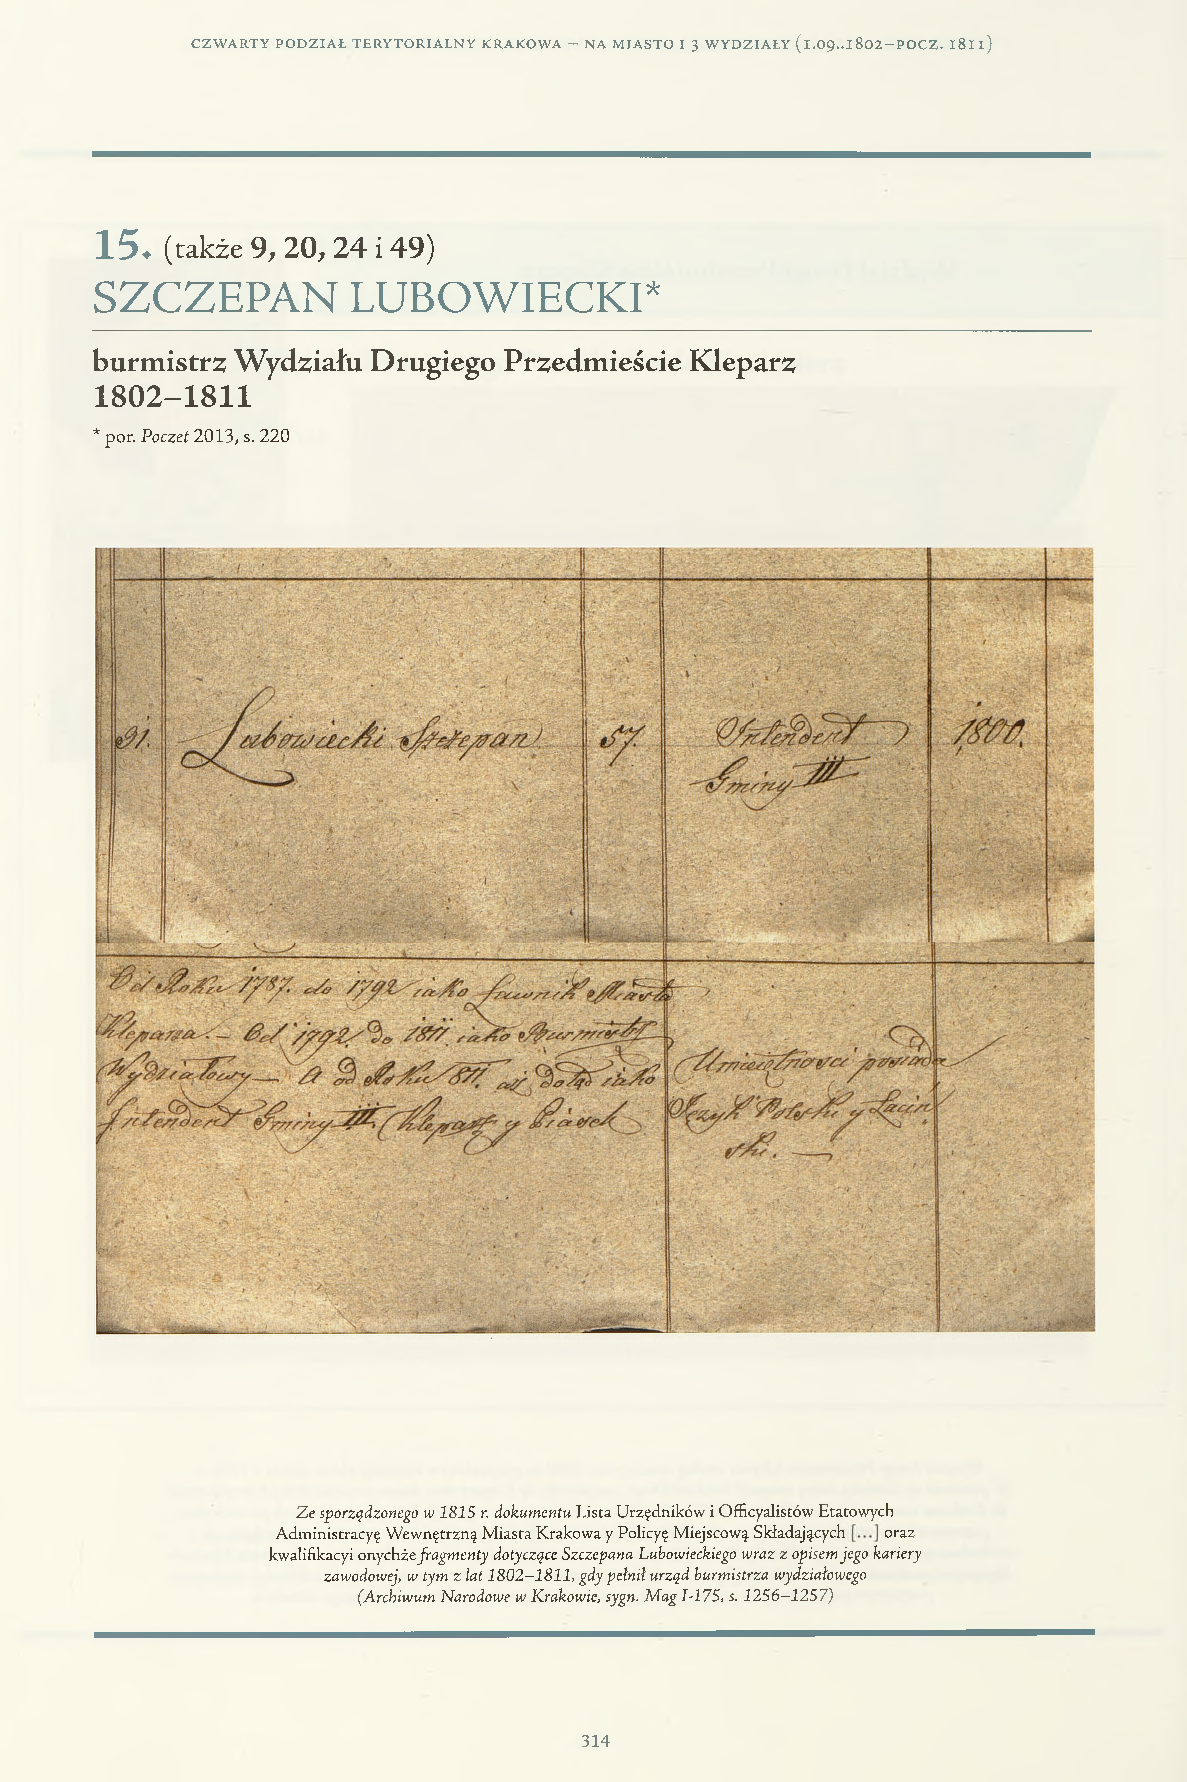 CZWARTY PODZIAŁ TERYTORIALNY KRAKOWA – NA MIASTO I 3 WYDZIAŁY (1.09..1802–POCZ. 1811)
15. (także 9, 20, 24 i 49)
SZCZEPAN LUBOWIECKI*
burmistrz Wydziału Drugiego Przedmieście Kleparz
1802–1811
* por. Poczet 2013, s. 220
31. Lubowiecki Szczepan 57. Intendent 1800.
Gminy III
Od Roku 1787. do 1792 iako Ławnik Miasta
Kleparza. – Od 1792 do 1811 iako Burmistrz
Wydziałowy — A od Roku 811. aż dotąd iako
Intendent Gminy III Kleparz y Piasek
Umieiętności posiada
Język Polski y Łaciń
ski. —
Ze sporządzonego w 1815 r. dokumentu Lista Urzędników i Officyalistów Etatowych
Administracyę Wewnętrzną Miasta Krakowa y Policyę Miejscową Składających [...] oraz
kwalifikacyi onychże fragmenty dotyczące Szczepana Lubowieckiego wraz z opisem jego kariery
zawodowej, w tym z lat 1802–1811, gdy pełnił urząd burmistrza wydziałowego
(Archiwum Narodowe w Krakowie, sygn. Mag I-175, s. 1256–1257)
314